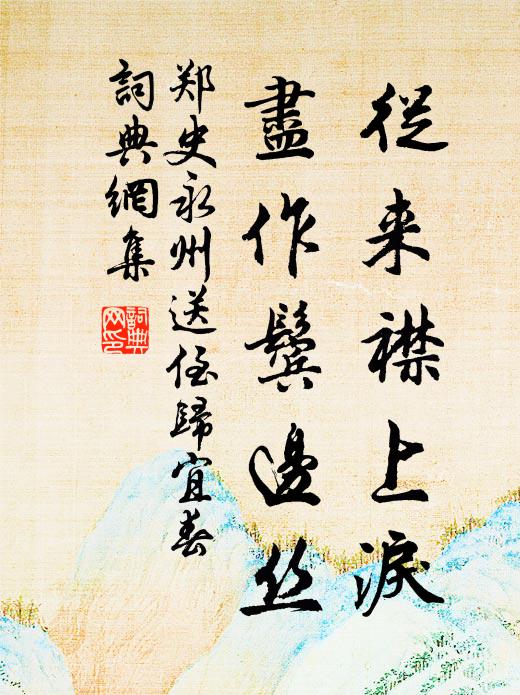 從来襟上淚
盡作鬓邊丝
郑史永州送侄歸宜春
詞典網集
詞典
网印